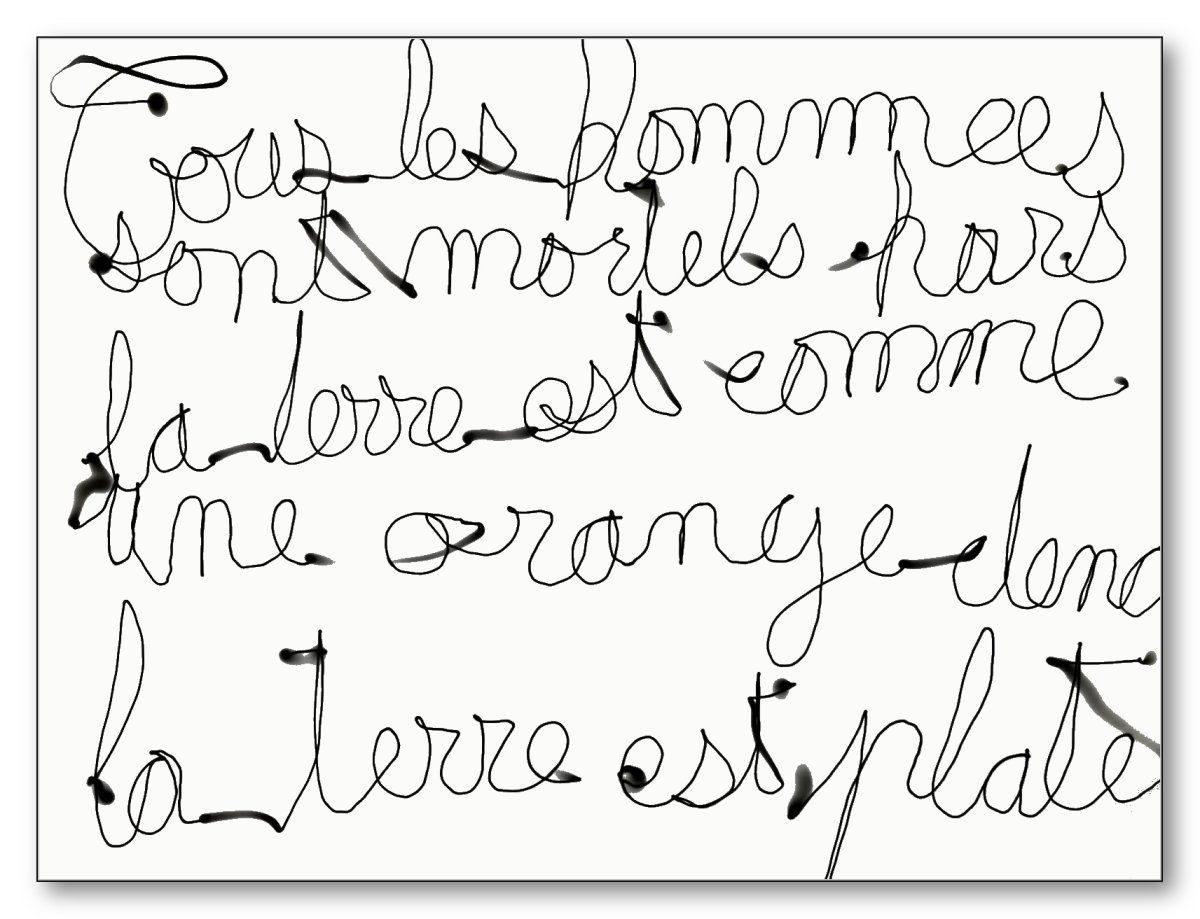 Tous les hommees
sont mortels
la terre est comme
une orange donc
la terre est plate